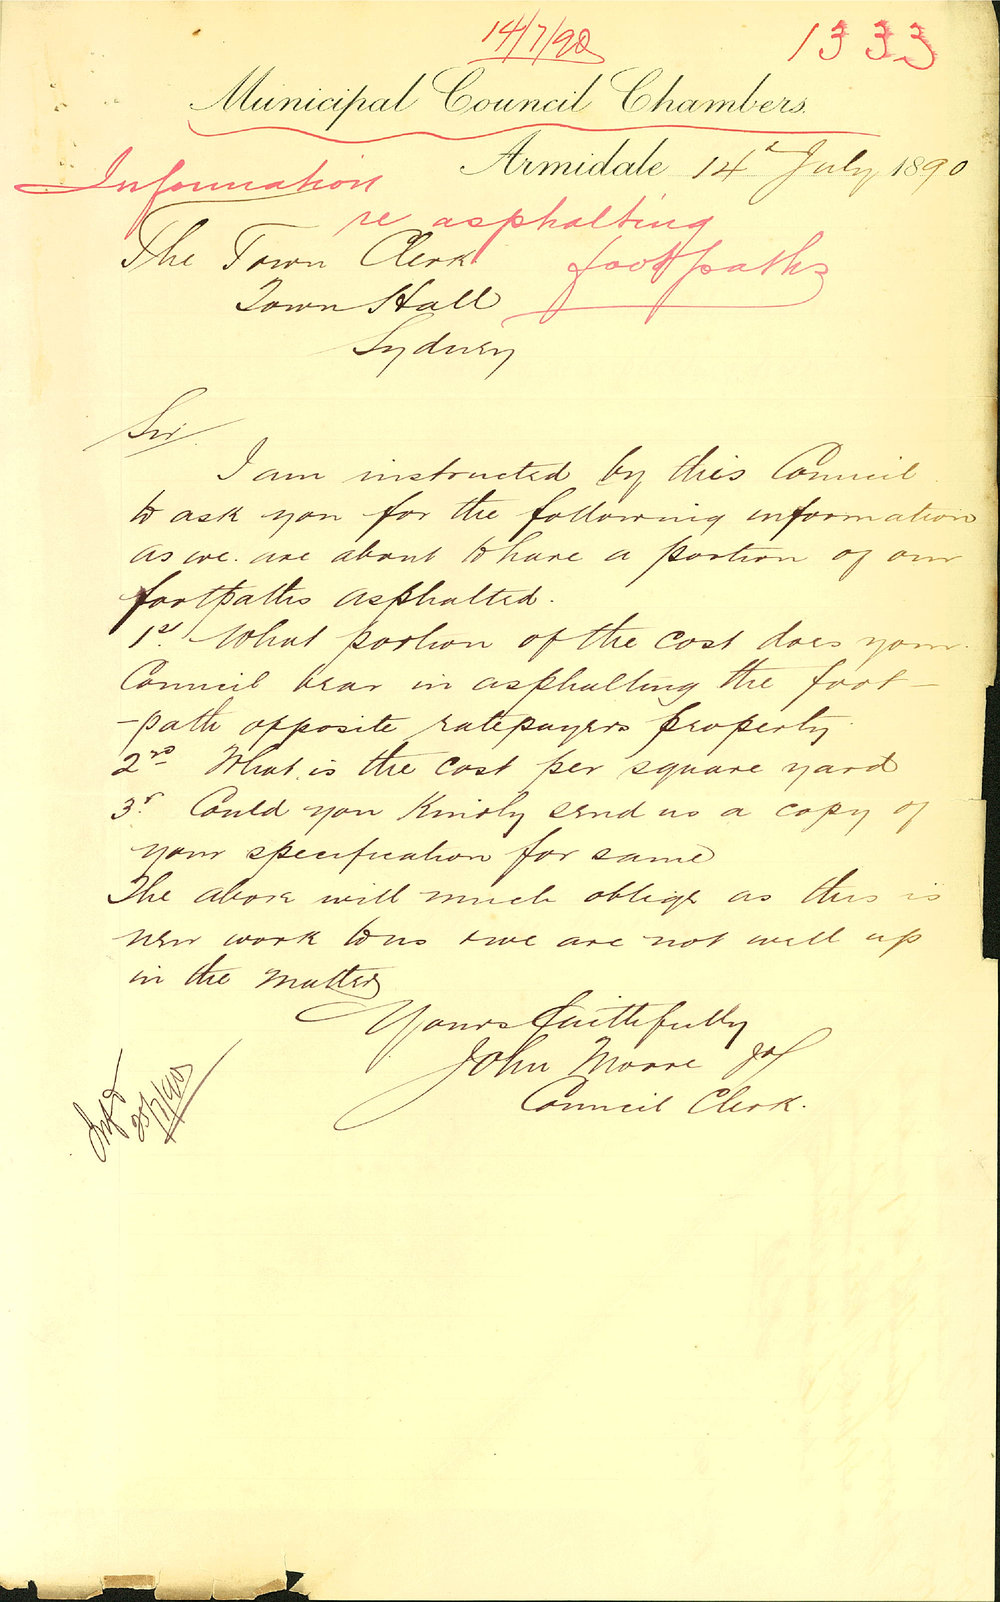 14/7/90
1333
Municipal Council Chambers.
Armidale 14th July 1890
Information
re asphalting
footpaths
The Town Clerk
Town Hall
Sydney
Sir
I am instructed by this Council
to ask you for the following information
as we are about to have a portion of our
footpaths asphalted.
1st What portion of the cost does your
Council bear in asphalting the foot-
-path opposite ratepayers property.
2nd What is the cost per square yard
3r. Could you kindly send us a copy of
your specification for same
The above will much oblige as this is
new work to us & we are not well up
in the matter
Yours faithfully
John Moore
Council Clerk.